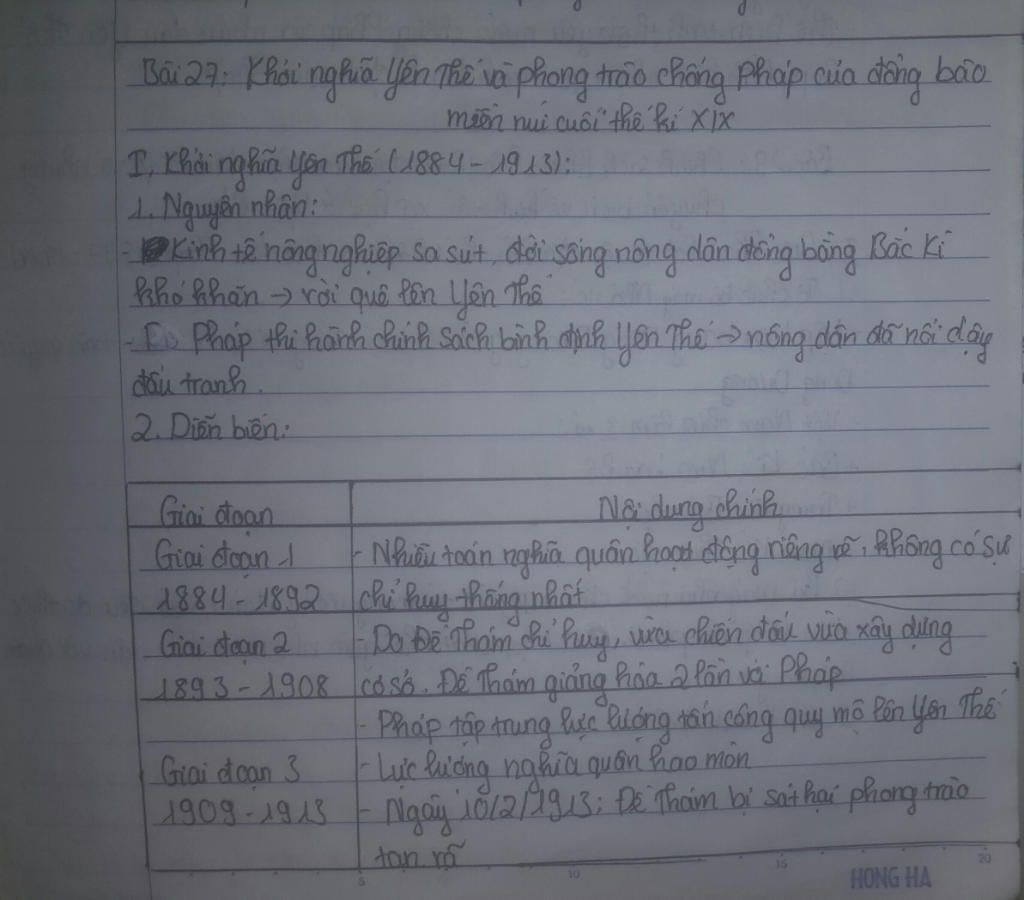 Bài 27: Khởi nghĩa Yên Thế và phong trào chống Pháp của đồng bào
miền núi cuối thế kỉ XIX
I, Khởi nghĩa Yên Thế (1884-1913):
1. Nguyên nhân:
- Kinh tế nông nghiệp sa sút, đời sống nông dân đồng bằng Bắc Kì
khó khăn → rời quê lên Yên Thế
- Pháp thi hành chính sách bình định Yên Thế → nông dân đã nổi dậy
đấu tranh.
2. Diễn biến:
Giai đoạn Nội dung chính
Giai đoạn 1 - Nhiều toán nghĩa quân hoạt động riêng rẽ, không có sự
1884-1892 chỉ huy thống nhất
Giai đoạn 2 - Do Đề Thám chỉ huy, vừa chiến đấu vừa xây dựng
1893-1908 cơ sở. Đề Thám giảng hòa 2 lần với Pháp
- Pháp tập trung lực lượng tấn công quy mô lên Yên Thế
Giai đoạn 3 - Lực lượng nghĩa quân hao mòn
1909-1913 - Ngày 10/2/1913: Đề Thám bị sát hại phong trào
tan rã
5 10 15 20
HONG HA